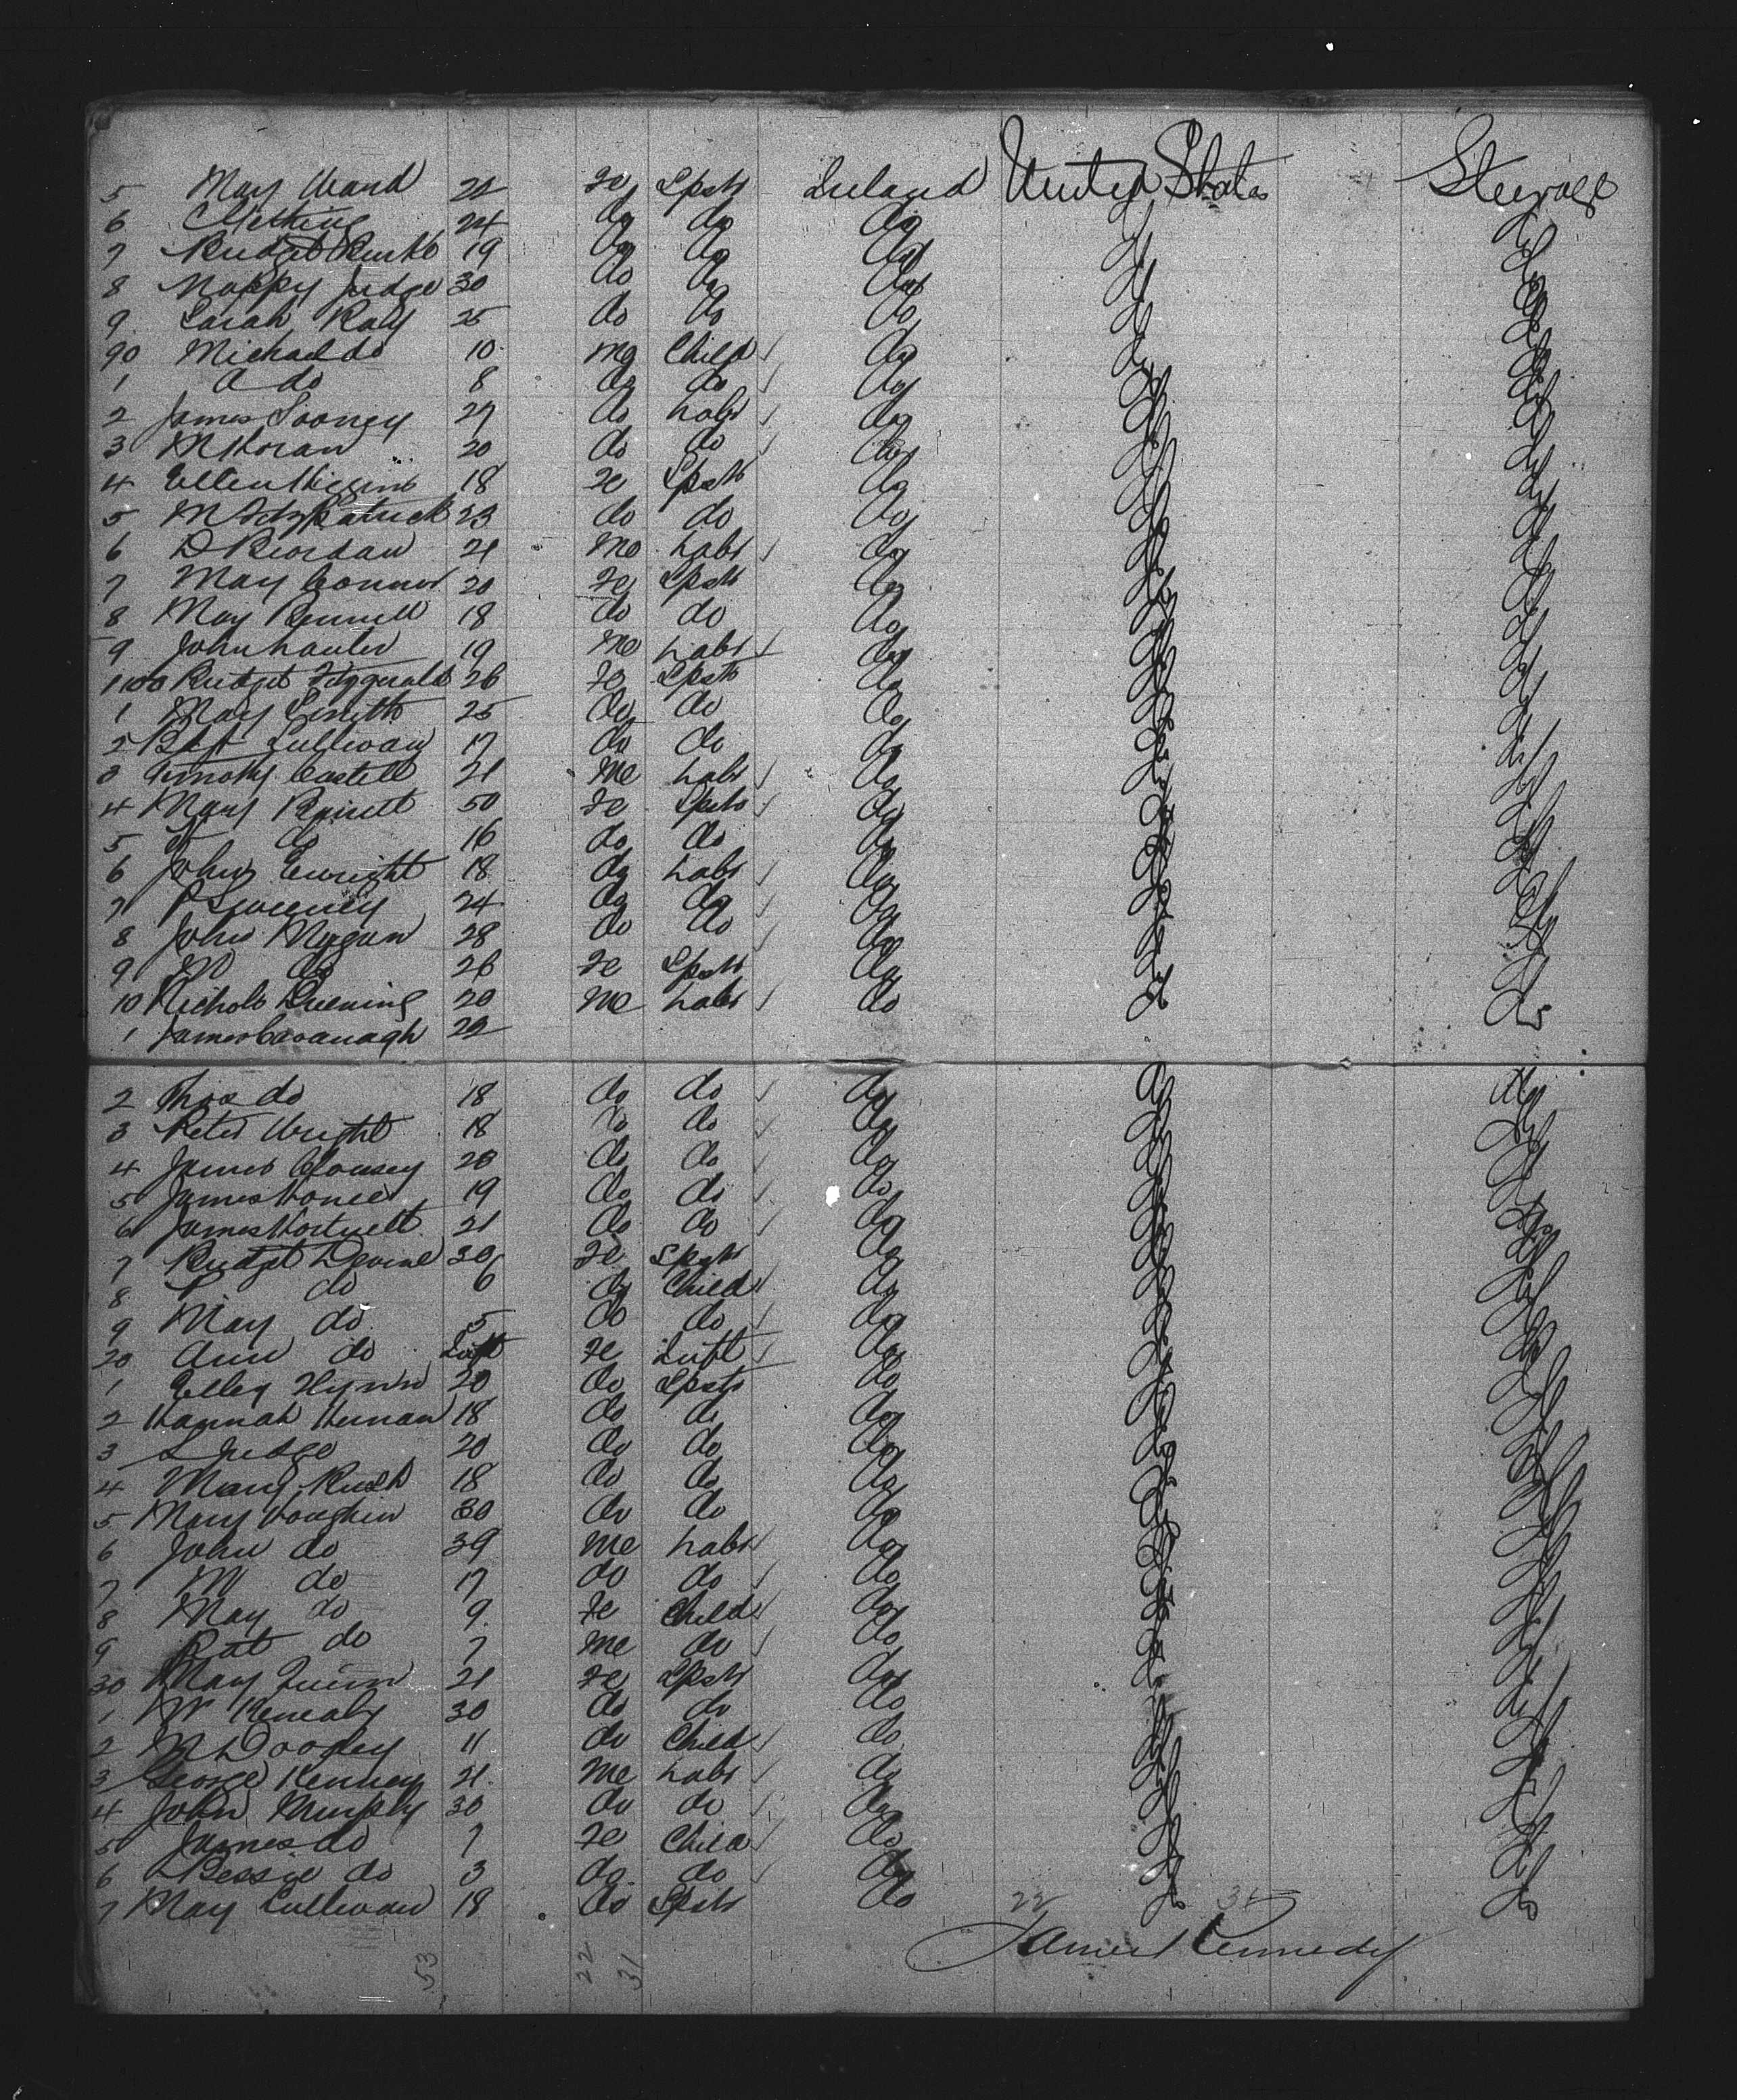 5 Mary Ward 21 Fe Spstr Ireland United States Steerage
6 C 24 do do do do do
7 Bridget 19 do do do do do
8 Nappy Judge 30 do do do do do
9 Sarah 25 do do do do do
90 Michael do 10 Me Child do do do
1 A do 8 do do do do do
2 James Looney 27 do Labr do do do
3 M Horan 20 do do do do do
4 Ellen Higgins 18 Fe Spstr do do do
5 M Fitzpatrick 23 do do do do do
6 D Reordan 21 Me Labr do do do
7 May Connor 20 Fe Spstr do do do
8 May 18 do do do do do
9 John Lawler 19 Me Labr do do do
1100 Bridget Fitzgerald 26 Fe Spstr do do do
1 Mary Smith 25 do do do do do
2 Sullivan 17 do do do do do
3 Timothy Castell 21 Me Labr do do do
4 Mary 50 Fe Spstr do do do
5 do 16 do do do do do
6 John Enright 18 do Labr do do do
7 P Sweeney 24 do do do do do
8 John 28 do do do do do
9 M do 26 Fe Spstr do do do
10 Nichols 20 Me Labr do do do
1 James Cavanagh 22
2 Thos do 18 do do do do do
3 Peter Wright 18 do do do do do
4 James 20 do do do do do
5 James 19 do do do do do
6 James Hartnett 21 do do do do do
7 Bridget Devine 30 Fe Spstr do do do
8 P do 6 do Child do do do
9 May do 5 do do do do do
20 Ann do Inft Fe Inft do do do
1 Elley Flynn 20 do Spstr do do do
2 Hannah Hernan 18 do do do do do
3 S Judge 20 do do do do do
4 Mary Rush 18 do do do do do
5 Mary Vaughin 30 do do do do do
6 John do 39 Me Labr do do do
7 M do 17 do do do do do
8 May do 9 Fe Child do do do
9 Pat do 7 Me do do do do
30 May Quinn 21 Fe Spstr do do do
1 M Kenealy 30 do do do do do
2 M Dooley 11 do Child do do do
3 George Kenney 21 Me Labr do do do
4 John Murphy 30 do do do do do
5 James do 7 Fe Child do do do
6 Bessie do 3 do do do do do
7 May Sullivan 18 do Spstr do do do
22 31
James Kennedy
53 22 31